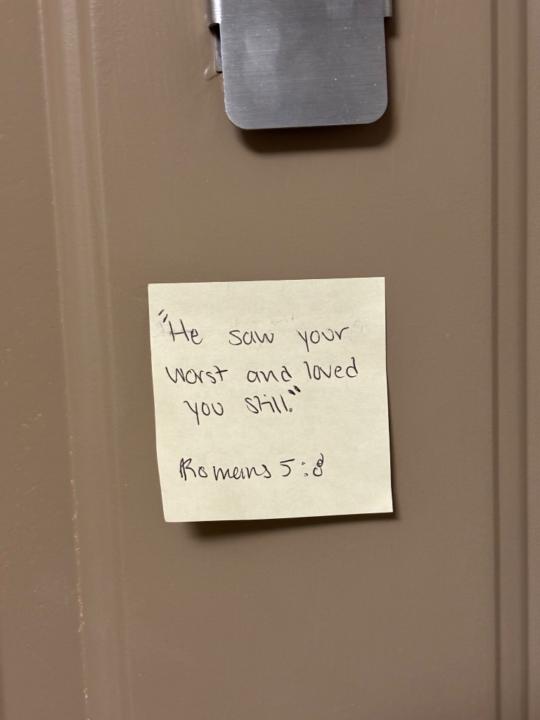 "He saw your
worst and loved
you still."
Romans 5:8